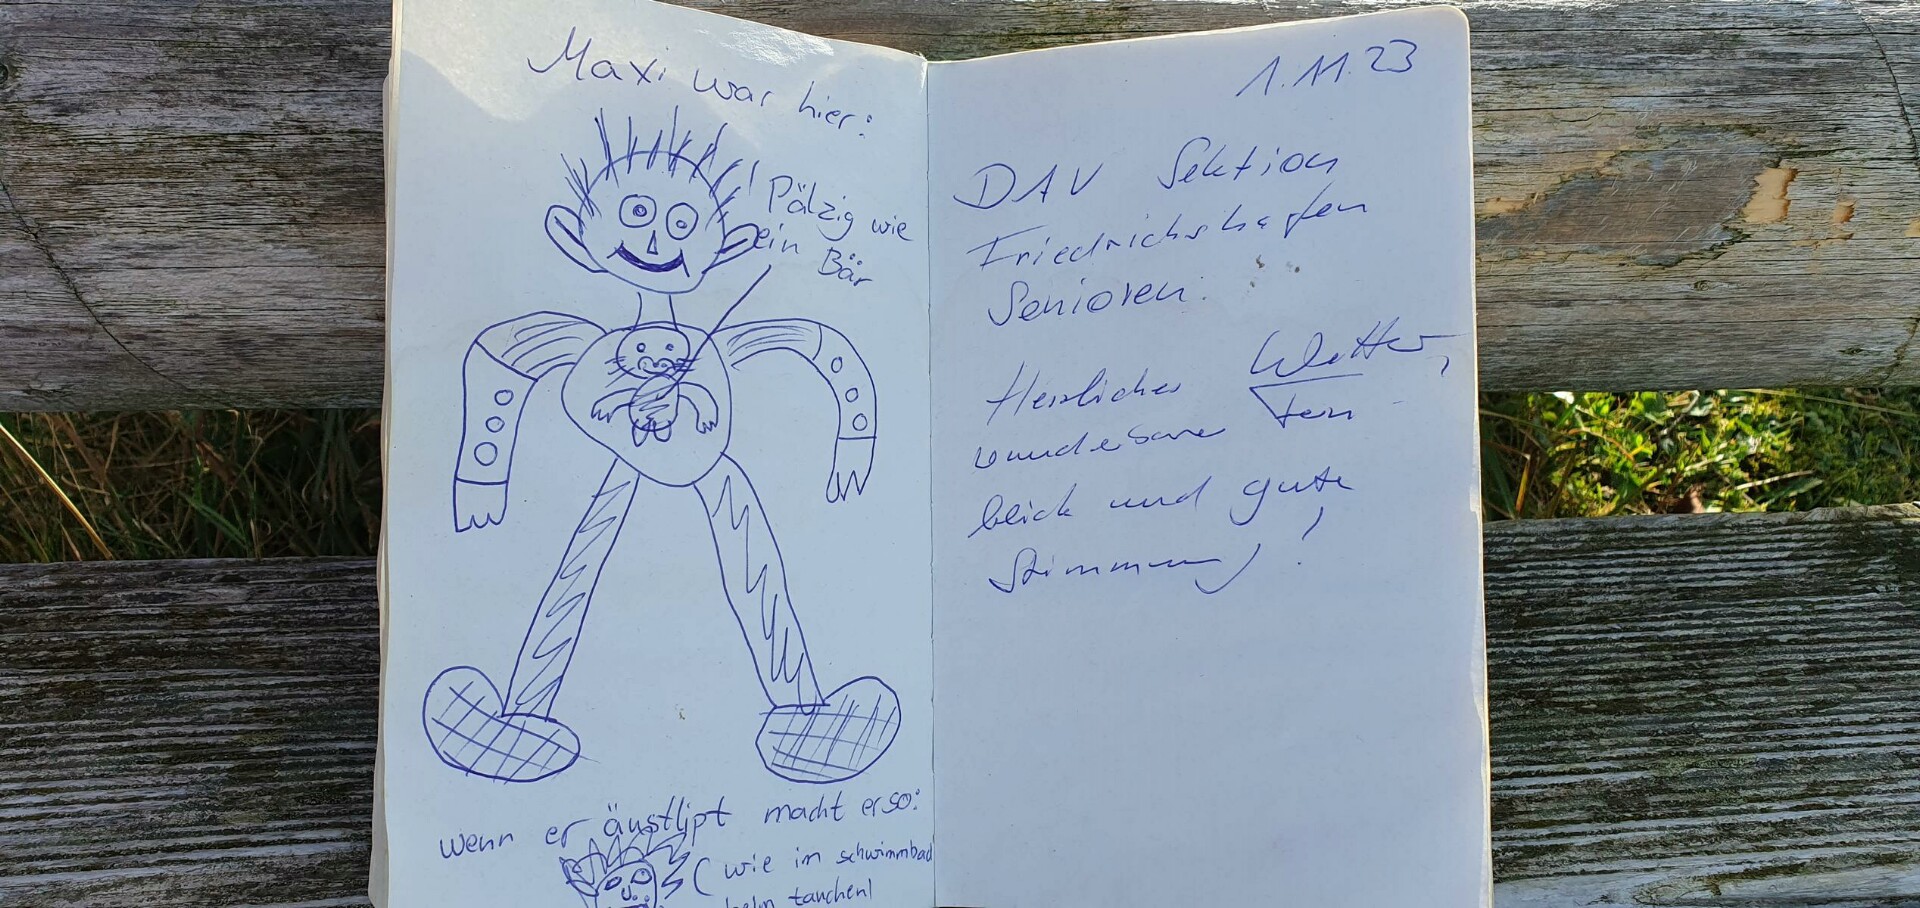 Maxi war hier:
Pälzig wie
ein Bär
wenn er äustlipt macht er so:
( wie im schwimmbad
beim tauchen)
1.11.23
DAV Sektion
Friedrichshafen
Senioren.
Herrliches Wetter,
wunderbare Fern
blick und gute
Stimmung!